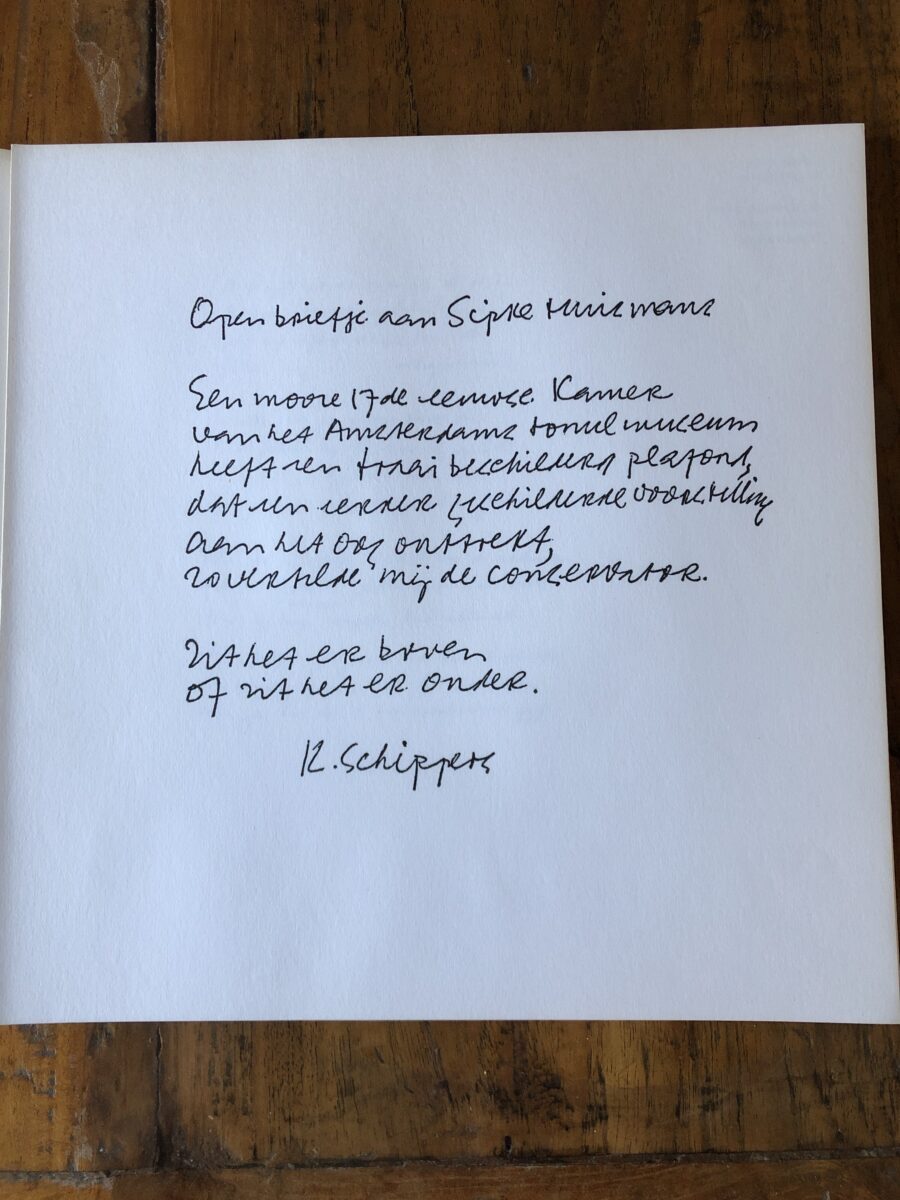 Open briefje aan Sipke Huismans
Een mooie 17de eeuwse Kamer
van het Amsterdams toneelmuseum
heeft een fraai beschilderd plafond,
dat een eerder geschilderde voorstelling
aan het oog onttrekt,
zo vertelde mij de conservator.
Zit het er boven
of zit het er onder.
K. Schippers